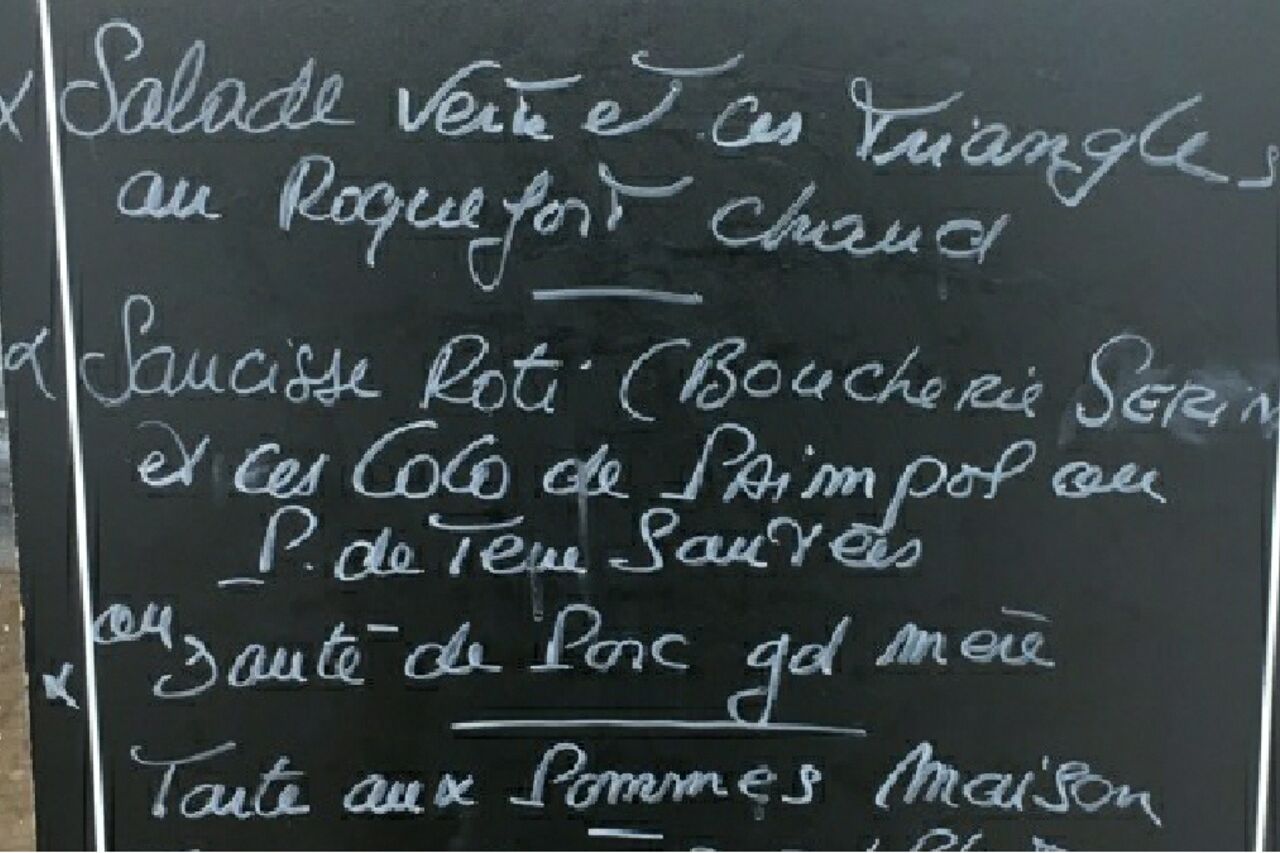 x Salade Verte et ces Triangles
au Roquefort chaud
x Saucisse Roti (Boucherie SERIN
et ces CoCo de PAimpol ou
P. de Terre Sautées
ou
x Sauté de Porc gd mère
Tarte aux Pommes Maison